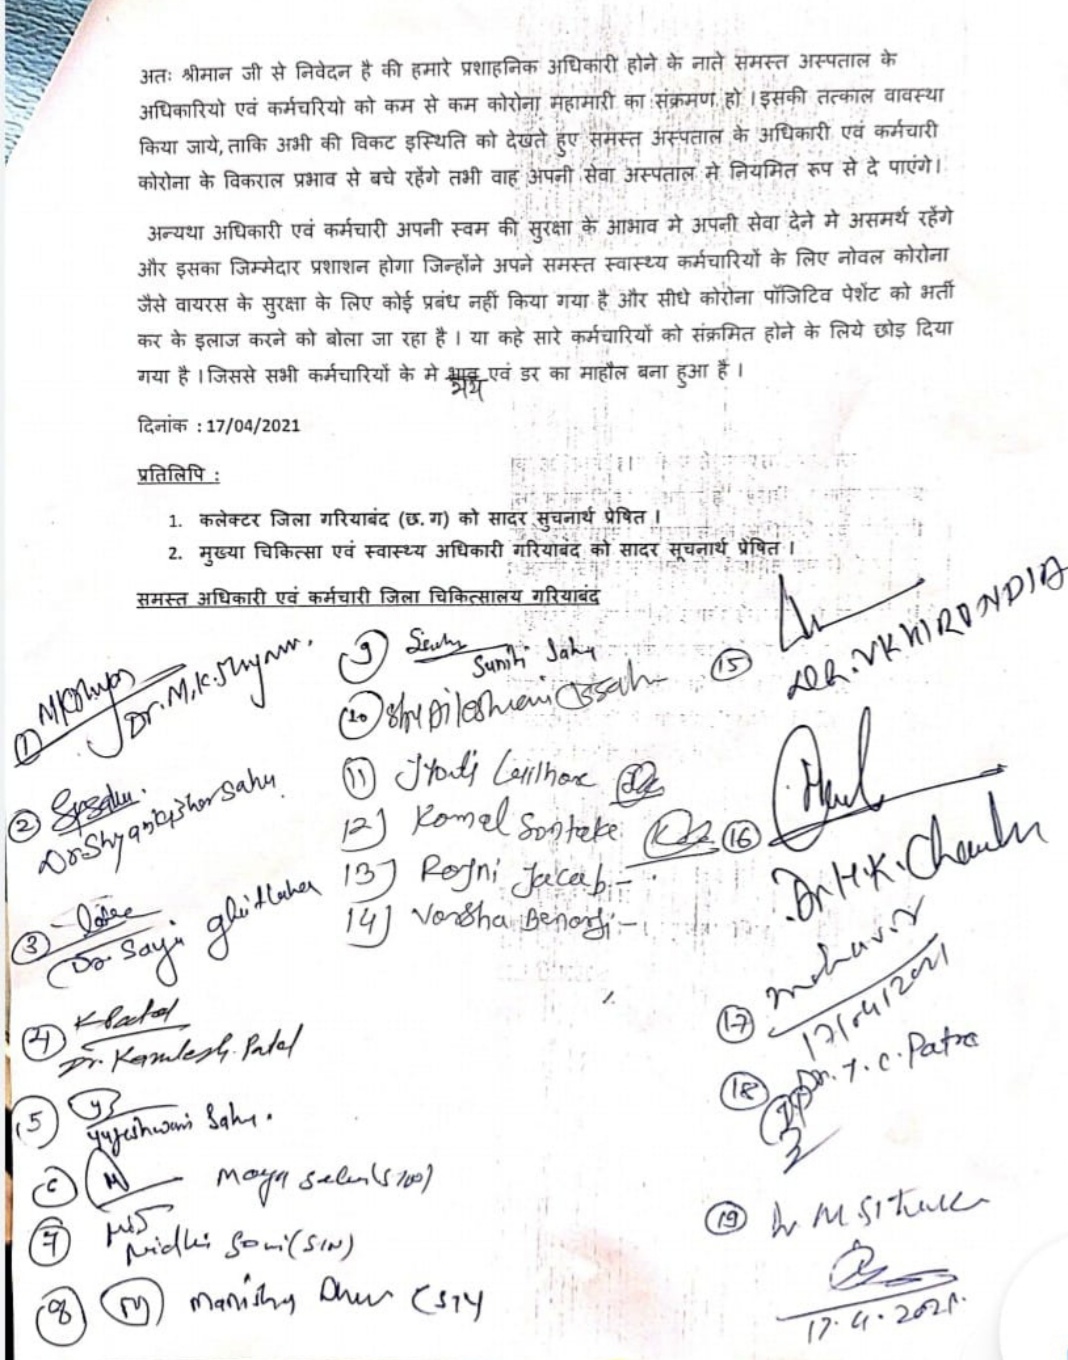 अतः श्रीमान जी से निवेदन है की हमारे प्रशाहनिक अधिकारी होने के नाते समस्त अस्पताल के
अधिकारियो एवं कर्मचरियो को कम से कम कोरोना महामारी का संक्रमण हो।इसकी तत्काल वावस्था
किया जाये,ताकि अभी की विकट इस्थिति को देखते हुए समस्त अस्पताल के अधिकारी एवं कर्मचारी
कोरोना के विकराल प्रभाव से बचे रहेंगे तभी वाह अपनी सेवा अस्पताल मे नियमित रूप से दे पाएंगे।
अन्यथा अधिकारी एवं कर्मचारी अपनी स्वम की सुरक्षा के आभाव मे अपनी सेवा देने मे असमर्थ रहेंगे
और इसका जिम्मेदार प्रशाशन होगा जिन्होंने अपने समस्त स्वास्थ्य कर्मचारियों के लिए नोवल कोरोना
जैसे वायरस के सुरक्षा के लिए कोई प्रबंध नहीं किया गया है और सीधे कोरोना पॉजिटिव पेशेंट को भर्ती
कर के इलाज करने को बोला जा रहा है । या कहे सारे कर्मचारियों को संक्रमित होने के लिये छोड़ दिया
गया है ।जिससे सभी कर्मचारियों के मे एवं डर का माहौल बना हुआ है ।
भय
दिनांक : 17/04/2021
प्रतिलिपि :
1. कलेक्टर जिला गरियाबंद (छ.ग) को सादर सुचनार्थ प्रेषित ।
2. मुख्या चिकित्सा एवं स्वास्थ्य अधिकारी गरियाबंद को सादर सूचनार्थ प्रेषित ।
समस्त अधिकारी एवं कर्मचारी जिला चिकित्सालय गरियाबंद
1
Dr. M.K.
2 SPSahu.
Dr Shyankishor Sahu
3
Dr.
4 K Patel
Dr. Kamlesh. Patel
5 YS
Sahu.
6 M Maya
7
Nidhi Soni (SIN)
8 M
9
Sahu
10
11 Jyoti
12) Komal Sontake
13) Rojni Jacab -
14) Varsha Benorji -
15
DR. VK HIRONDIA
16
Dr H.K. Chandra
17
17/04/2021
18 Dr. T. C. Patre
19 Dr M.
17.4.2021.